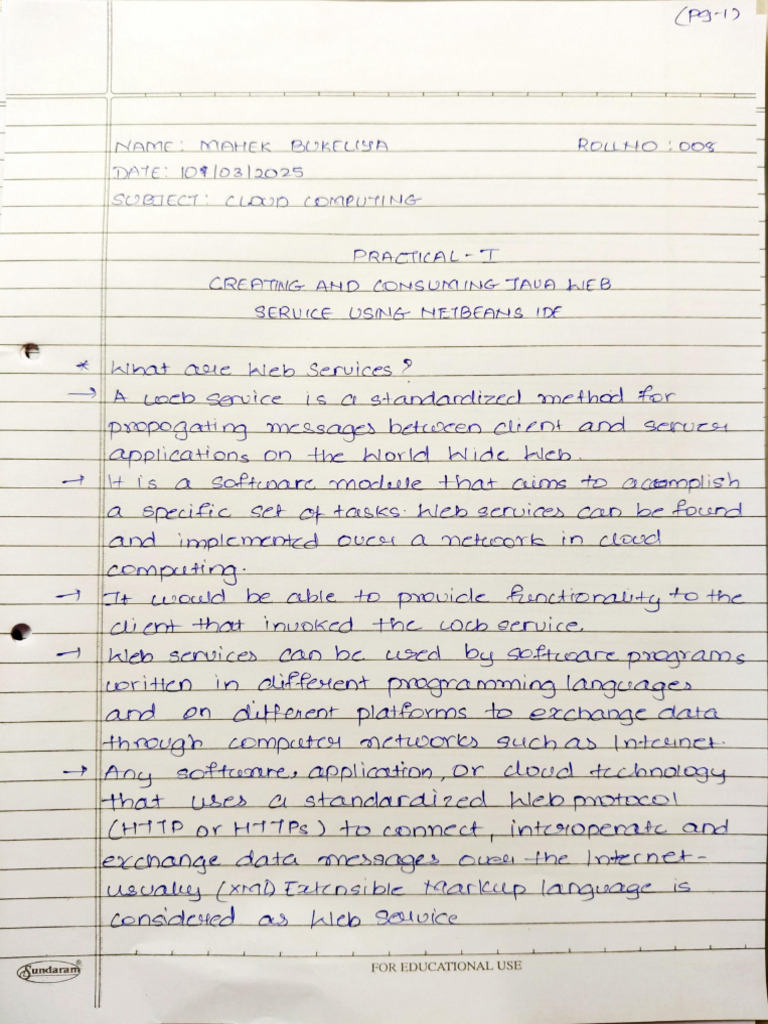 (Pg-1)
NAME: MAHEK BUKELIYA ROLLNO: 008
DATE: /03/2025
SUBJECT: CLOUD COMPUTING
PRACTICAL-I
CREATING AND CONSUMING JAVA WEB
SERVICE USING NETBEANS IDE
* What are Web Services?
→ A web service is a standardized method for
propogating messages between client and server
applications on the World Wide Web.
→ It is a software module that aims to accomplish
a specific set of tasks. Web services can be found
and implemented over a network in cloud
computing.
→ It would be able to provide functionality to the
client that invoked the web service.
→ Web services can be used by software programs
written in different programming languages
and on different platforms to exchange data
through computer networks such as Internet.
→ Any software, application, or cloud technology
that uses a standardized Web protocol
(HTTP or HTTPs) to connect, interoperate and
exchange data messages over the Internet-
usually (XML) Extensible Markup language is
considered as Web Service
Sundaram®
FOR EDUCATIONAL USE